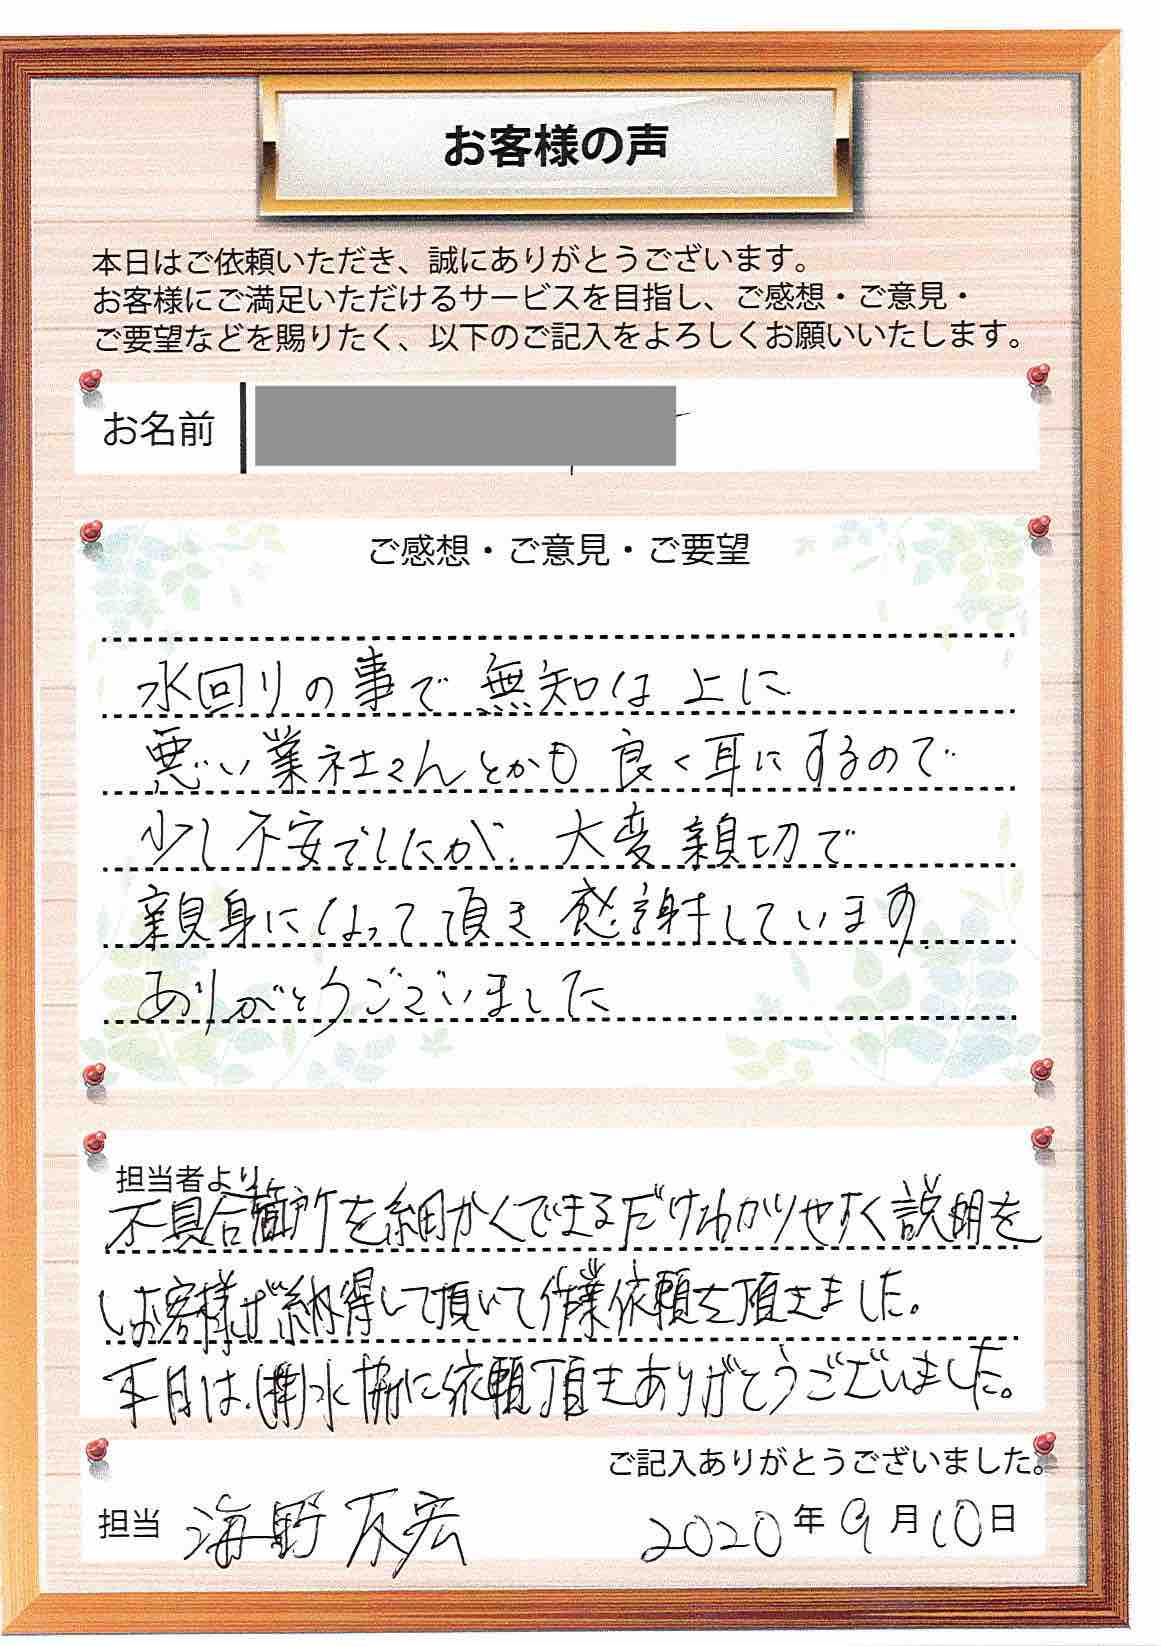 お客様の声
本日はご依頼いただき、誠にありがとうございます。
お客様にご満足いただけるサービスを目指し、ご感想・ご意見・
ご要望などを賜りたく、以下のご記入をよろしくお願いいたします。
お名前
ご感想・ご意見・ご要望
水回りの事で無知な上に
悪い業社さんとかも良く耳にするので
少し不安でしたが、大変親切で
親身になって頂き感謝しています。
ありがとうございました
担当者より
不具合箇所を細かくできるだけわかりやすく説明を
しお客様が納得して頂いて作業依頼を頂きました。
本日は、(株)水協に依頼頂きありがとうございました。
ご記入ありがとうございました。
担当 海野 宏
2020年9月10日